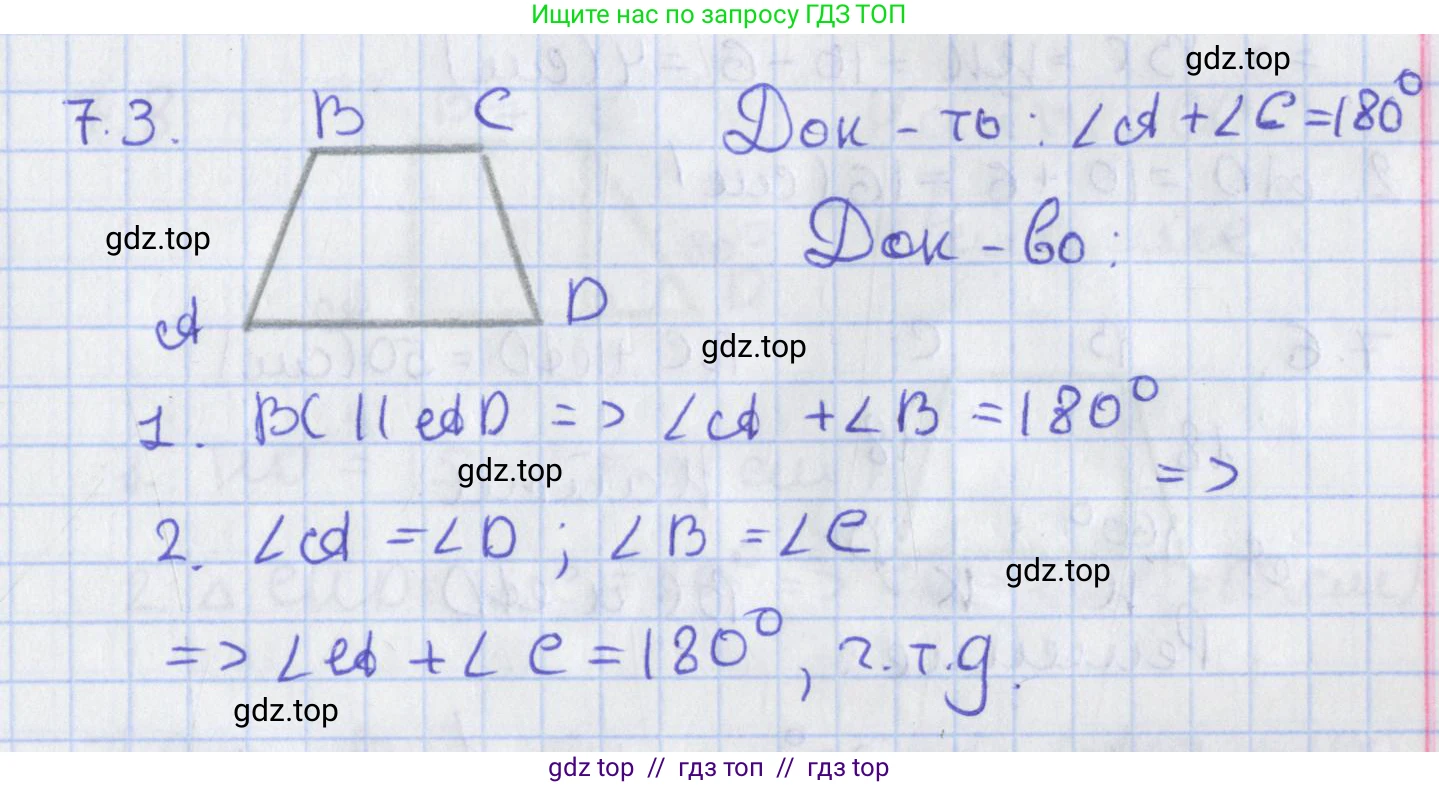 Ищите нас по запросу ГДЗ ТОП
gdz.top
7.3. B C Док-ть: ∠A + ∠C = 180°
gdz.top
Док-во:
A D
gdz.top
1. BC || AD => ∠A + ∠B = 180°
gdz.top
=>
2. ∠A = ∠D ; ∠B = ∠C
gdz.top
=> ∠A + ∠C = 180°, ч.т.д.
gdz.top
gdz top // гдз топ // гдз top